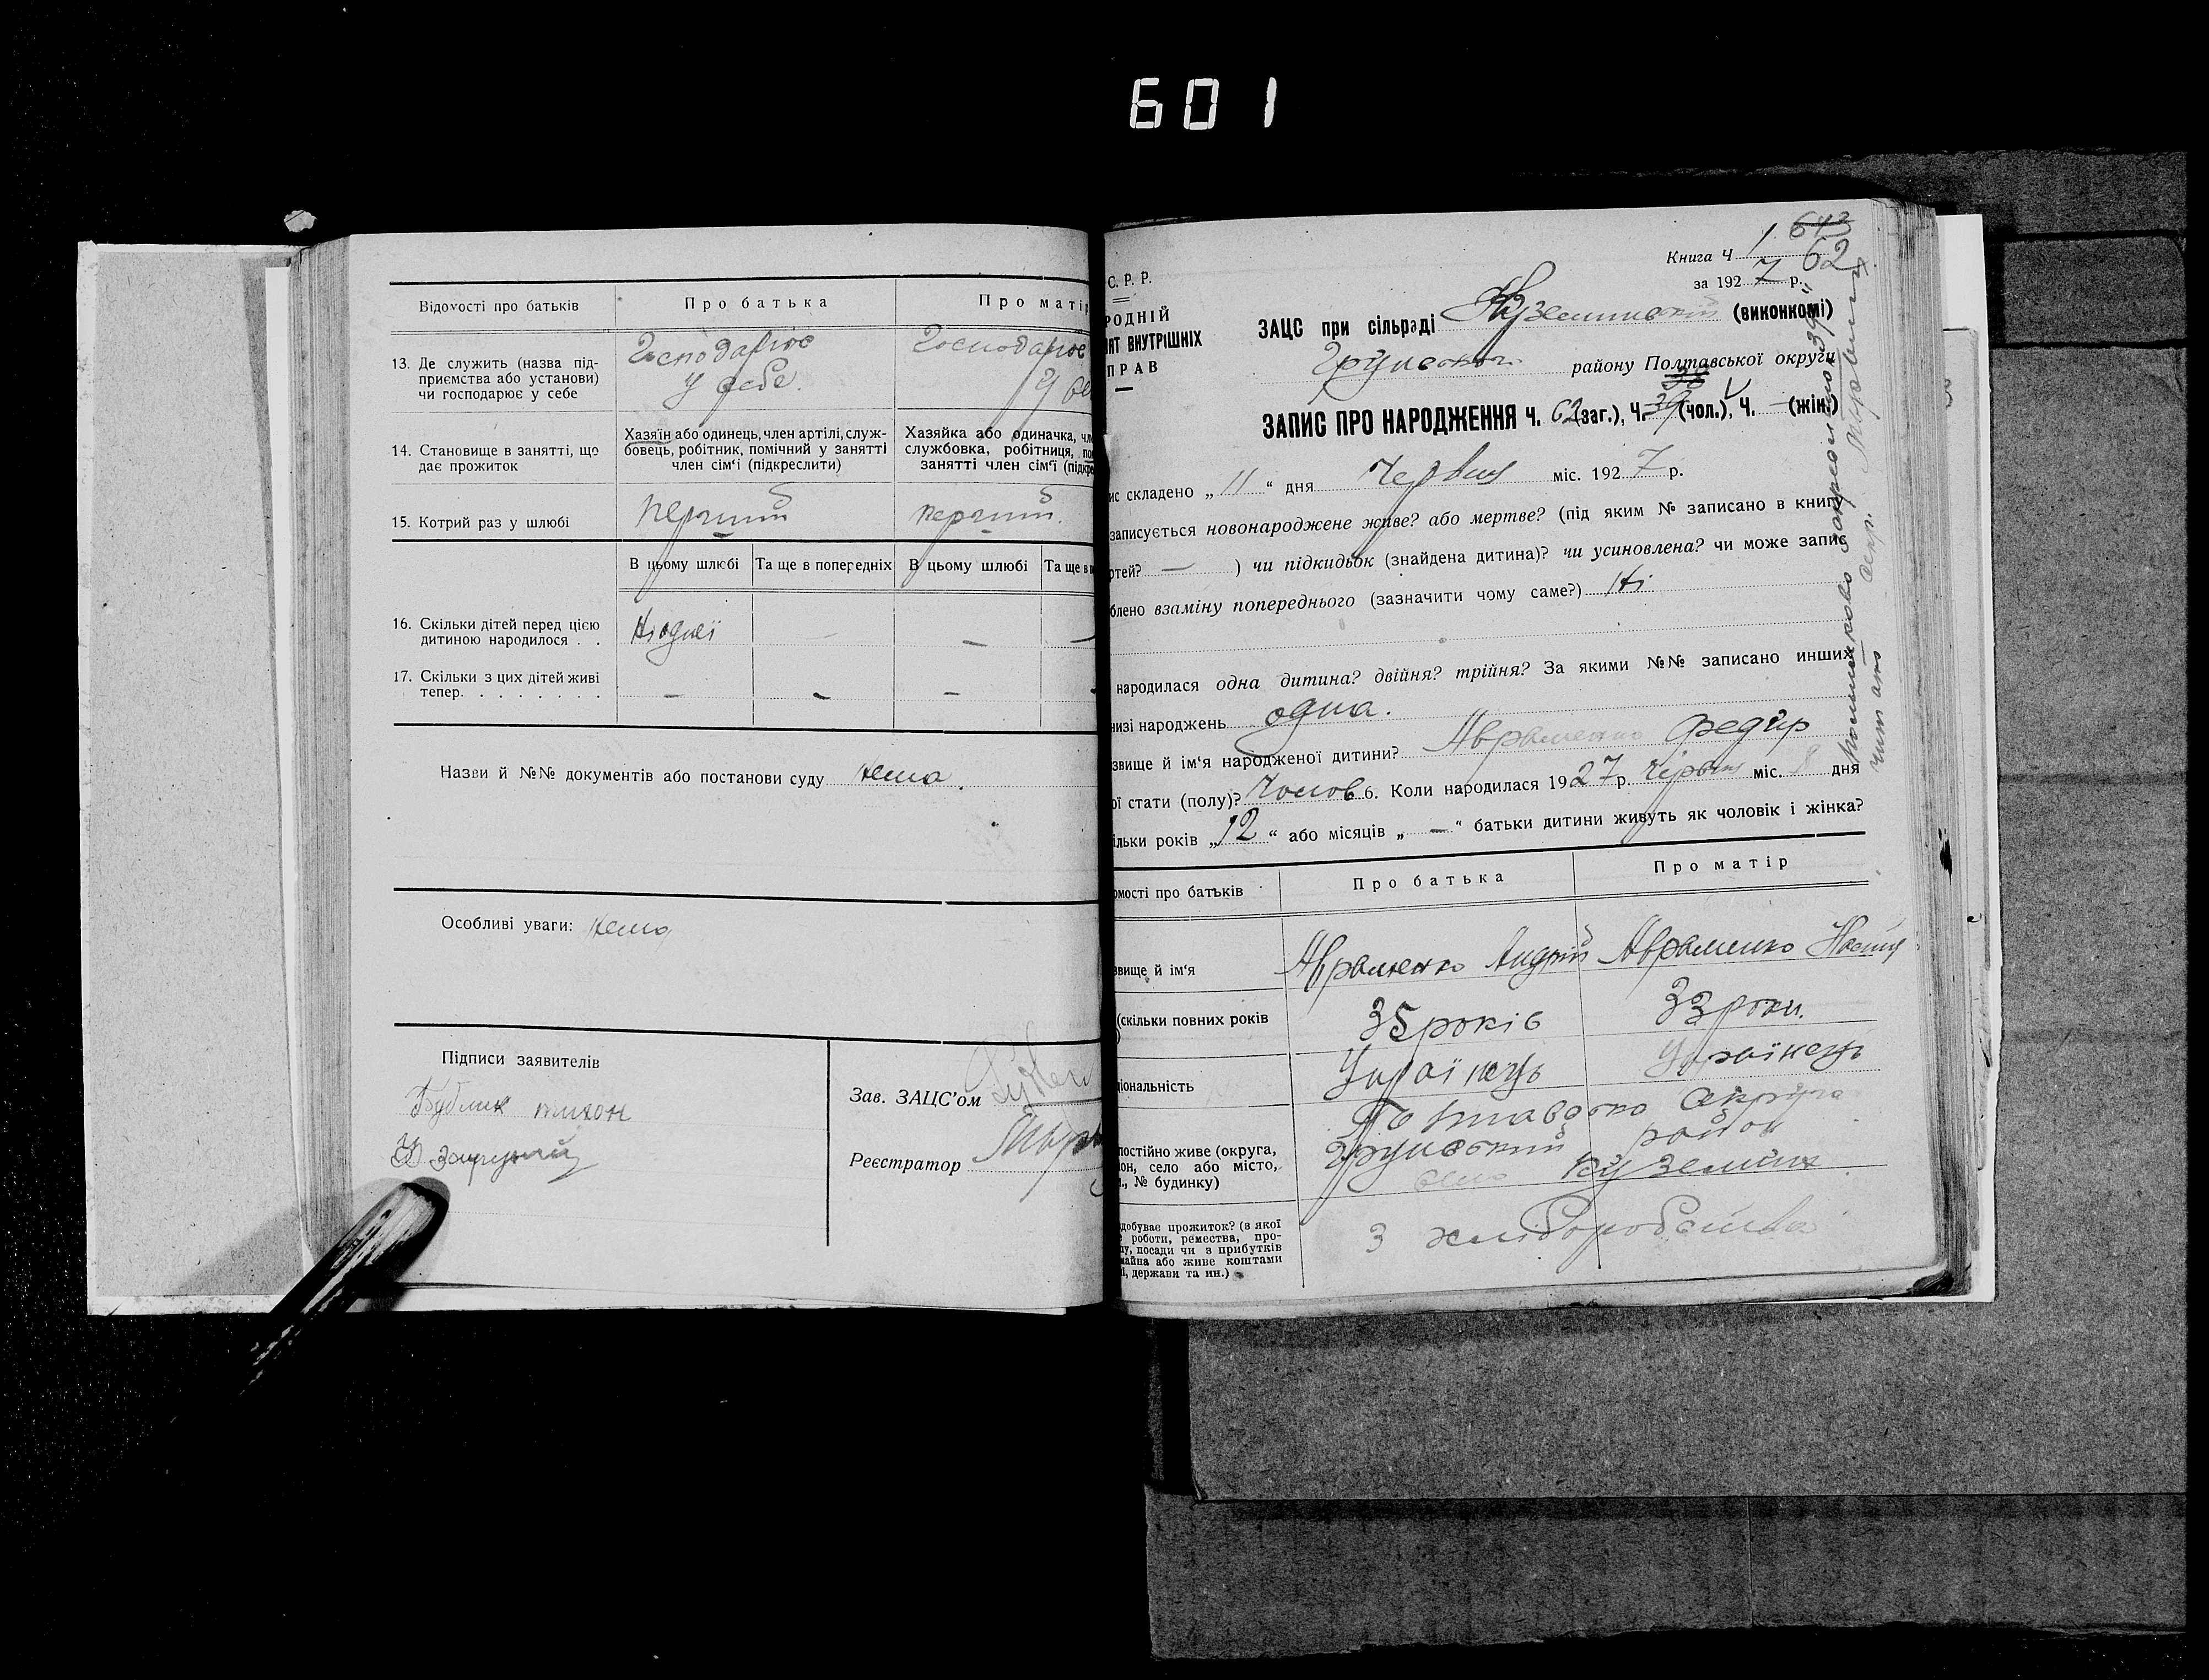 601
Відомості про батьків
Про батька
Про матір
13. Де служить (назва під-
приємства або установи)
чи господарює у себе
Господарює
у себе.
Господарює
у се
14. Становище в занятті, що
дає прожиток
Хазяїн або одинець, член артілі, служ-
бовець, робітник, помічний у занятті
член сім'ї (підкреслити)
Хазяйка або одиначка, чл
службовка, робітниця, по
занятті член сім'ї (підкре
15. Котрий раз у шлюбі
перший
перший.
В цьому шлюбі
Та ще в попередніх
В цьому шлюбі
Та ще в п
16. Скільки дітей перед цією
дитиною народилося . .
Ні одної
—
—
—
17. Скільки з цих дітей живі
тепер. . . . . . . .
—
—
—
—
Назви й №№ документів або постанови суду нема.
Особливі уваги: нема
Підписи заявителів
Бублик тихон
Зав. ЗАЦС'ом
Реєстратор
643
Книга Ч 1 62
за 1927 р.
С. Р. Р.
РОДНІЙ
ЯТ ВНУТРІШНІХ
ПРАВ
ЗАЦС при сільраді Куземинській (виконкомі)
Грунської району Полтавської округи
38
ЗАПИС ПРО НАРОДЖЕННЯ Ч. 62 (заг.), Ч. 39 (чол.), Ч. — (жін.)
ис складено „11“ дня Червня міс. 1927 р.
записується новонароджене живе? або мертве? (під яким № записано в книгу
ртей? — ) чи підкидьок (знайдена дитина)? чи усиновлена? чи може запис
блено взаміну попереднього (зазначити чому саме?) Ні
народилася одна дитина? двійня? трійня? За якими №№ записано инших
низі народжень одна.
звище й ім'я народженої дитини? Авраменко Федір
ої стати (полу)? Чолов 6. Коли народилася 1927 р. Червня міс. 8 дня
ільки років „12“ або місяців „—“ батьки дитини живуть як чоловік і жінка?
омості про батьків
Про батька
Про матір
звище й ім'я
Авраменко Андрій
Авраменко
(скільки повних років
)
35 років
33 роки.
ціональність
Українець
Українець
постійно живе (округа,
он, село або місто,
., № будинку)
Полтавська Округа
Грунський район
село Куземин
добуває прожиток? (з якої
роботи, ремества, про-
ду, посади чи з прибутків
майна або живе коштами
і, держави та ин.)
З хліборобства